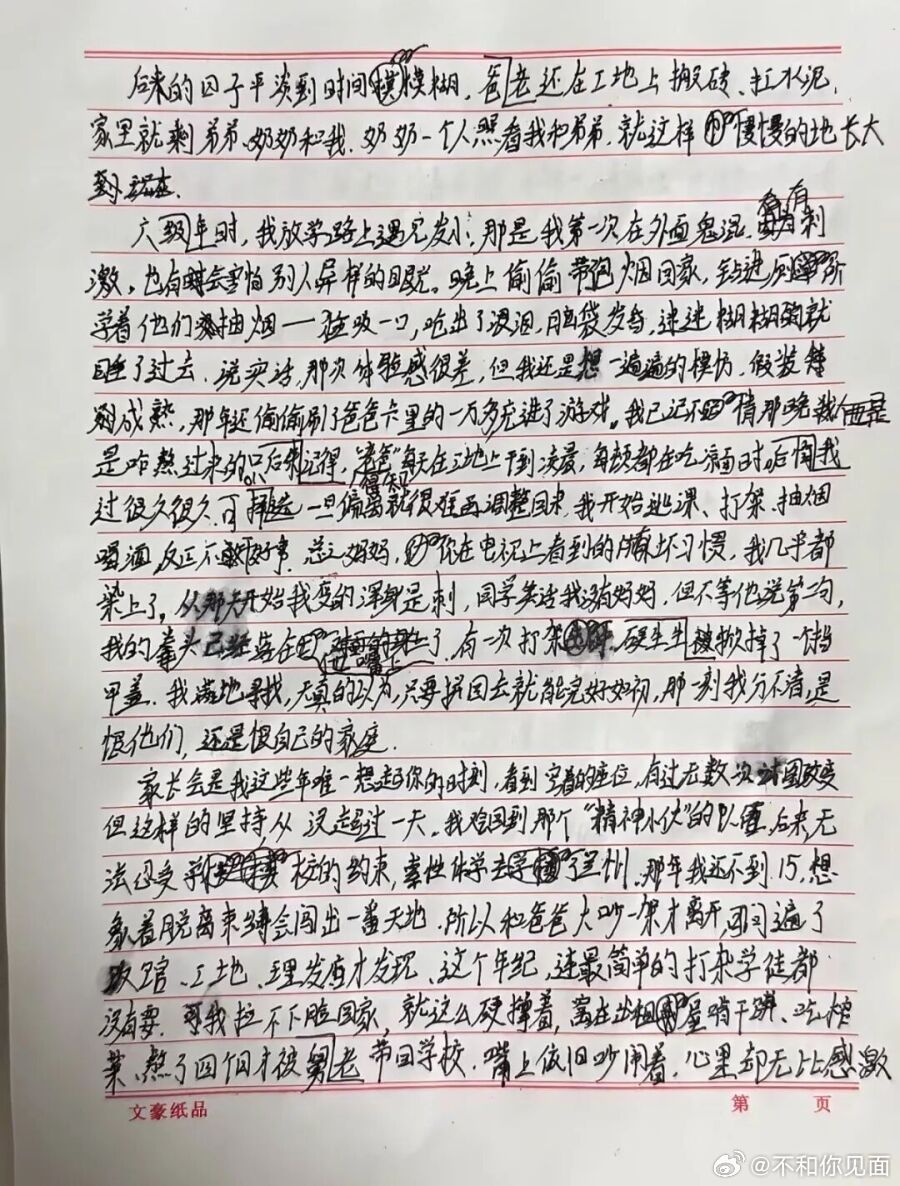 后来的日子平淡到时间模糊，爸老还在工地上搬砖、扛水泥，
家里就剩弟弟、奶奶和我。奶奶一个人照看我和弟弟，就这样慢慢的地长大
到现在
六级年时，我放学路上遇见发小，那是我第一次在外面鬼混，有刺
激，也有时会害怕别人异样的眼光。晚上偷偷带包烟回家，钻进厕所
学着他们抽烟一猛吸一口，呛出了眼泪，脑袋发昏，迷迷糊糊的就
睡了过去。说实话，那次体验感很差，但我还是想一遍遍的模仿，假装
成熟，那年还偷偷刷了爸爸卡里的一万多充进了游戏。我已记不清那晚我
是咋熬过来的只后来记得，“老爸”每天在工地上干到凌晨，每顿都在吃
过很久很久，可一旦偏离就很难再调整回来，我开始逃课、打架、抽烟
喝酒，反正不做好事，总之妈妈，你在电视上看到的所有坏习惯，我几乎都
染上了，从那天开始我变的浑身是刺，同学笑话我没有妈妈，但不等他说第二句，
我的拳头已经落在他嘴上了，有一次打架硬生生被掀掉了一个指
甲盖，我满地寻找，天真的以为，只要拼回去就能完好如初，那一刻我分不清，是
恨他们，还是恨自己的家庭。
家长会是我这些年唯一想起你的时刻，看到空着的座位，有过无数次试图改变
但这样的坚持从没超过一天。我总回到那个“精神小伙”的队伍，后来，无
法忍受学校的约束，索性休学去了兰州，那年我还不到15，想
象着脱离束缚会闯出一番天地，所以和爸爸大吵一架才离开，问遍了
饭馆、工地、理发店才发现、这个年纪，连最简单的打杂学徒都
没有要，可我拉不下脸回家，就这么硬撑着，窝在出租屋啃干饼、吃榨
菜，熬了四个月才被舅老带回学校，嘴上依旧吵闹着，心里却无比感激
文豪纸品
第 页
@不和你见面